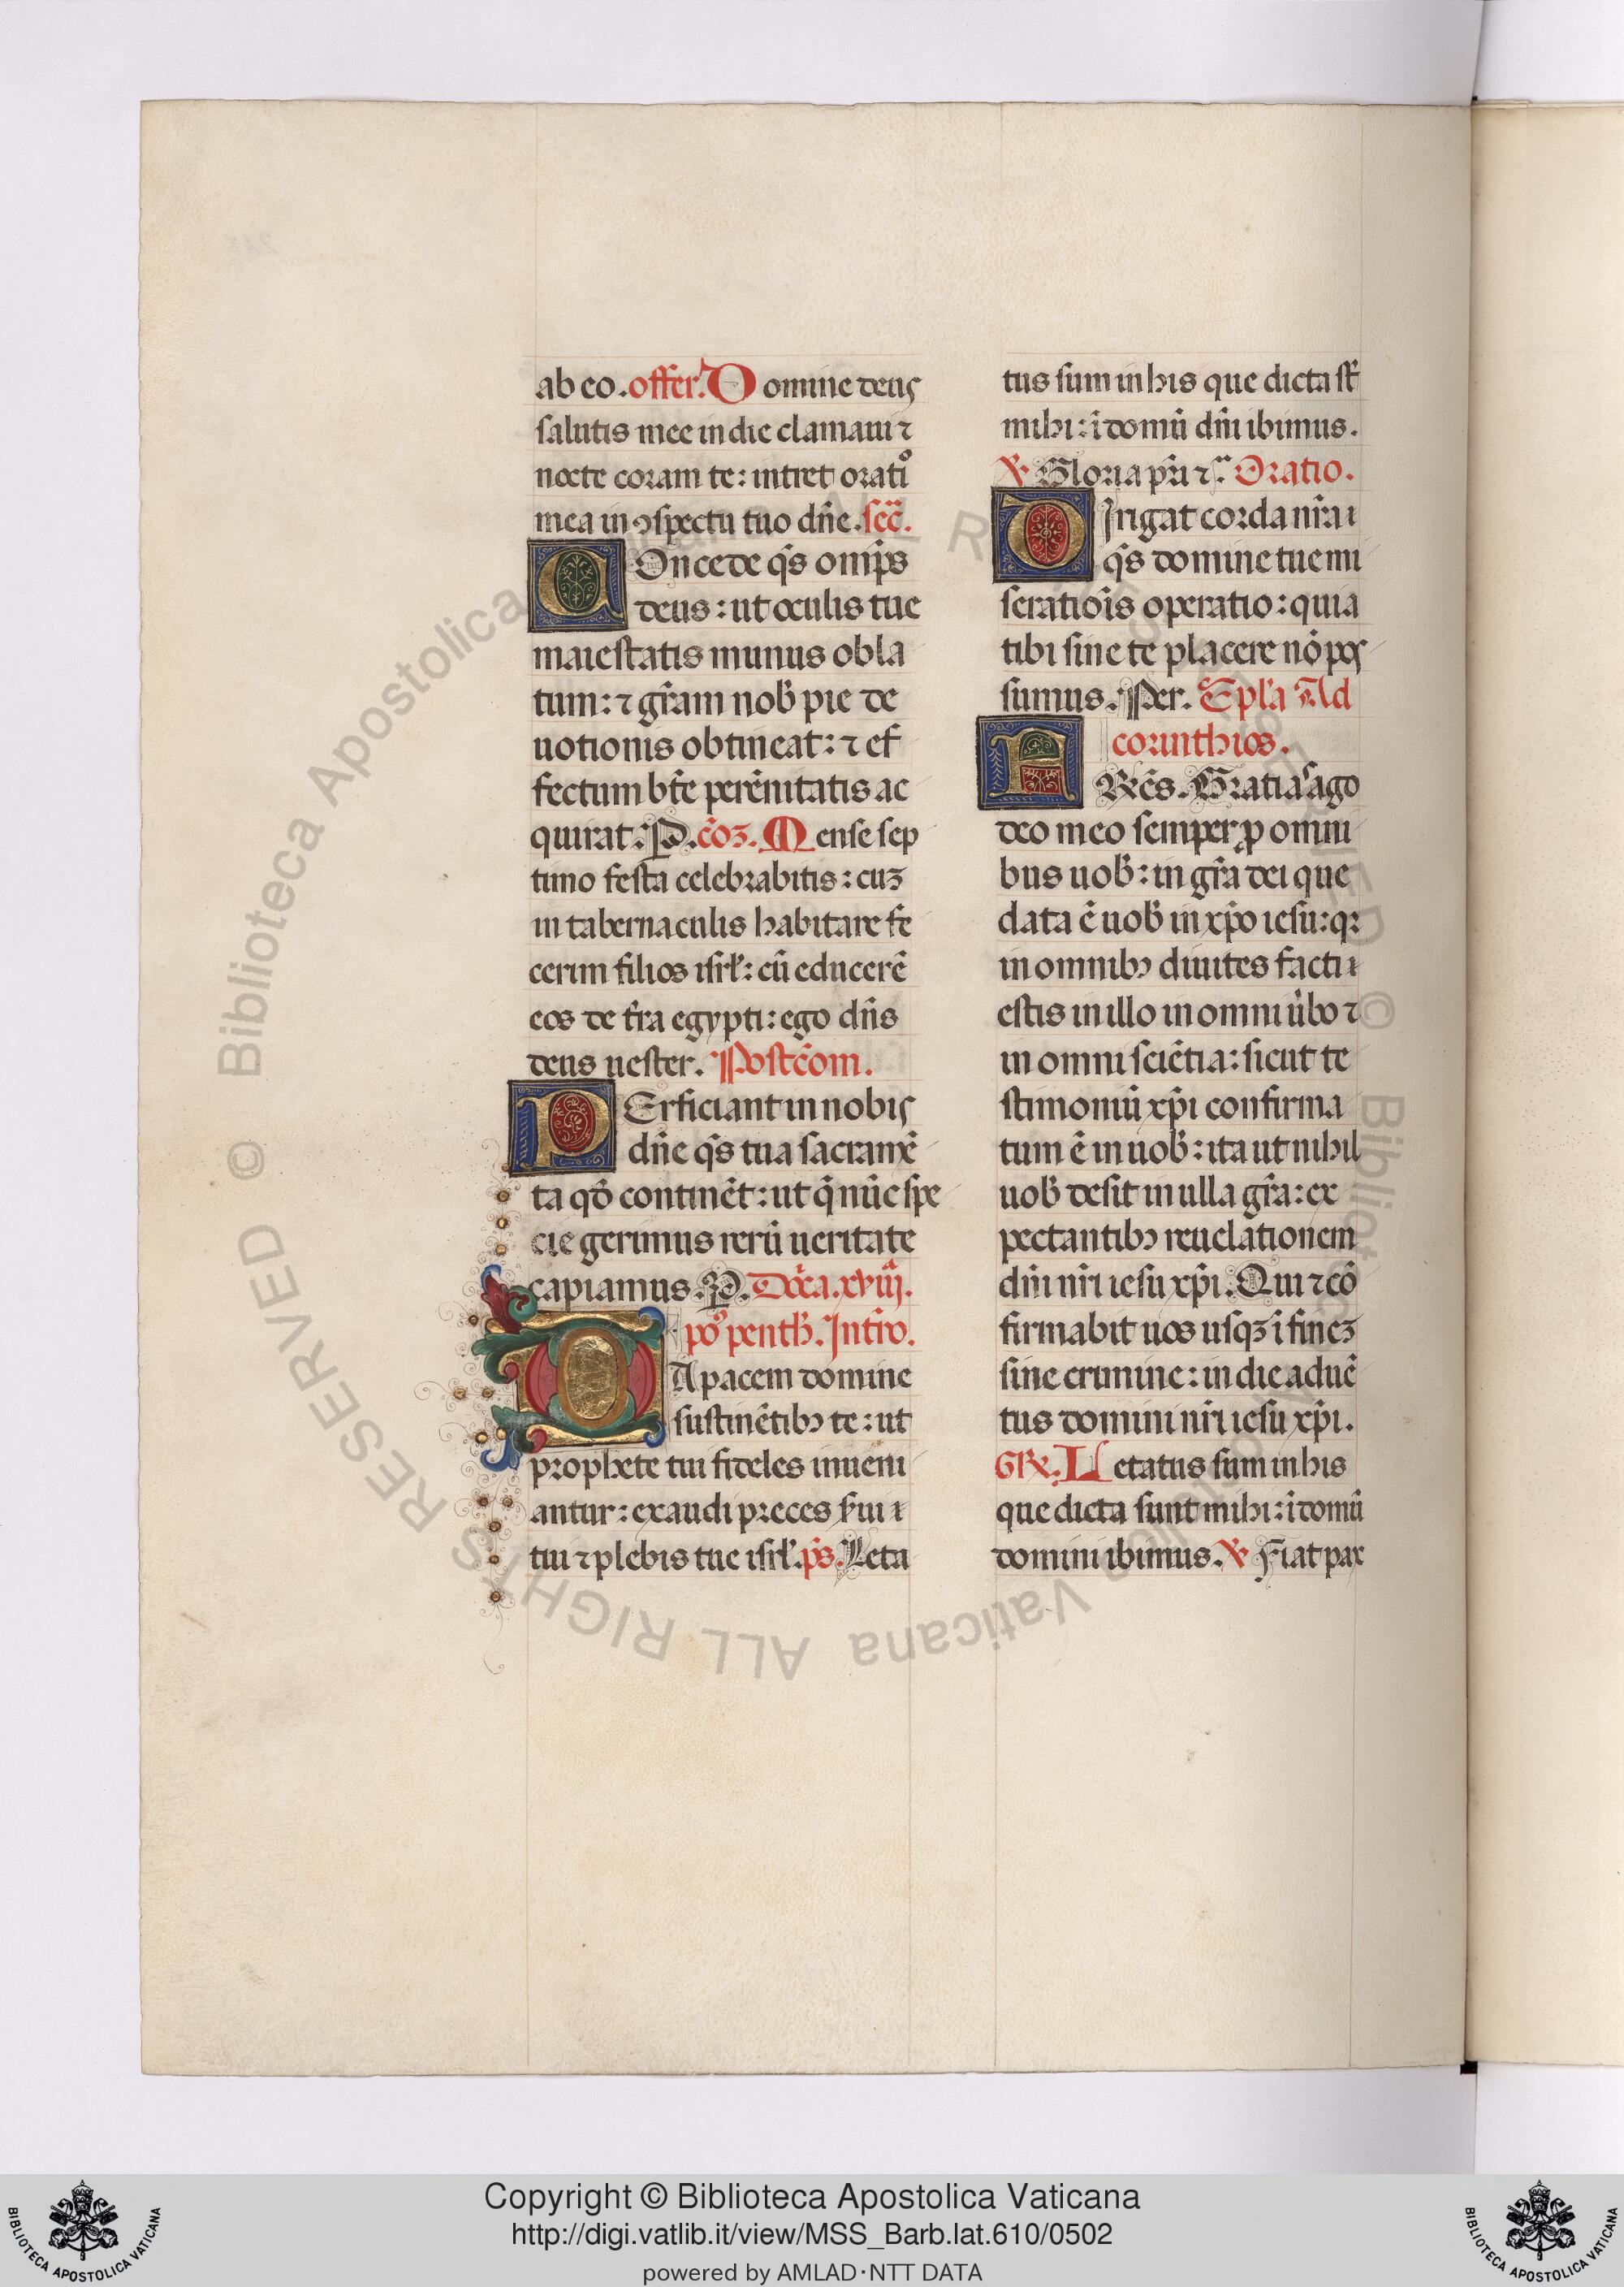 ab eo. offer. Domine deus
salutis mee in die clamaui ⁊
nocte coram te: intret oratio̊
mea in ꝯspectu tuo dn̄e. sec̄.
COncede q̄s omīps
deus: ut oculis tue
maiestatis munus obla
tum: ⁊ gr̄am nob̄ pie de
uotionis obtineat: ⁊ ef
fectum bt̄e perēnitatis ac
quirat: P. cōꝫ. Mense sep
timo festa celebrabitis: cuꝫ
in tabernaculis habitare fe
cerim filios isrl̄: cū educerē
eos de t̄ra egypti: ego dn̄s
deus uester. Postc̄om.
PErficiant in nobis
dn̄e q̄s tua sacramē
ta qd̄ continēt: ut q̄ nūc spe
cie gerimus rerū ueritate
capiamus. P. Dōca. xviij.
po̊ penth̄. Intr̄o.
DA pacem domine
sustinētibꝰ te: ut
prophete tui fideles inueni
antur: exaudi preces s̄ui
tui ⁊ plebis tue isrl̄. p̄s. Leta
tus sum in his que dicta st̄
mihi: ī domū dn̄i ibimus.
℣ Gloria pr̄i ⁊c̄. Oratio.
DIrigat corda nr̄a
q̄s domine tue mi
seratiōis operatio: quia
tibi sine te placere nō pos
sumus. Per. Epl̄a Ad
corinthios.
FRr̄es. Gratias ago
deo meo semper ꝓ omni
bus uob̄: in gr̄a dei que
data ē uob̄ in xp̄o iesu: qꝛ
in omnibꝰ diuites facti
estis in illo in omni u̇bo ⁊
in omni sciētia: sicut te
stimoniū xp̄i confirma
tum ē in uob̄: ita ut nihil
uob̄ desit in ulla gr̄a: ex
pectantibꝰ reuelationem
dn̄i nr̄i iesu xp̄i. Qui ⁊ cō
firmabit uos usqꝫ ī fineꝫ
sine crimine: in die aduē
tus domini nr̄i iesu xp̄i.
GR̄. Letatus sum in his
que dicta sunt mihi: ī domū
domini ibimus. ℣ Fiat pax
© Biblioteca Apostolica Vaticana ALL RIGHTS RESERVED
Copyright © Biblioteca Apostolica Vaticana
http://digi.vatlib.it/view/MSS_Barb.lat.610/0502
powered by AMLAD·NTT DATA
BIBLIOTECA APOSTOLICA VATICANA
BIBLIOTECA APOSTOLICA VATICANA